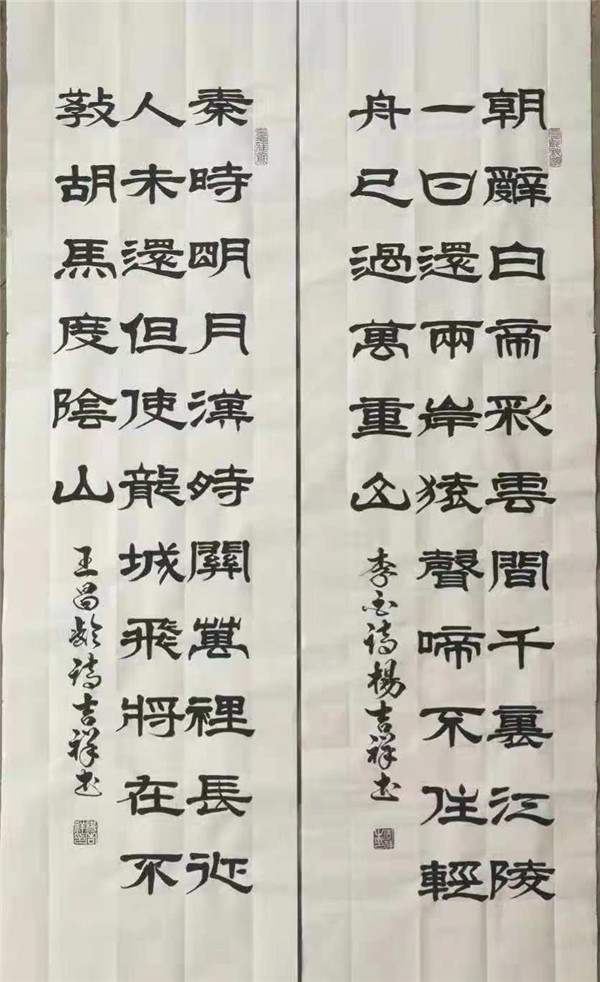 朝辭白帝彩雲間千裏江陵
一日還兩岸猿聲啼不住輕
舟已過萬重山
李白詩楊吉祥书
秦時明月漢時關萬裡長征
人未還但使龍城飛將在不
教胡馬度陰山
王昌齡詩吉祥书